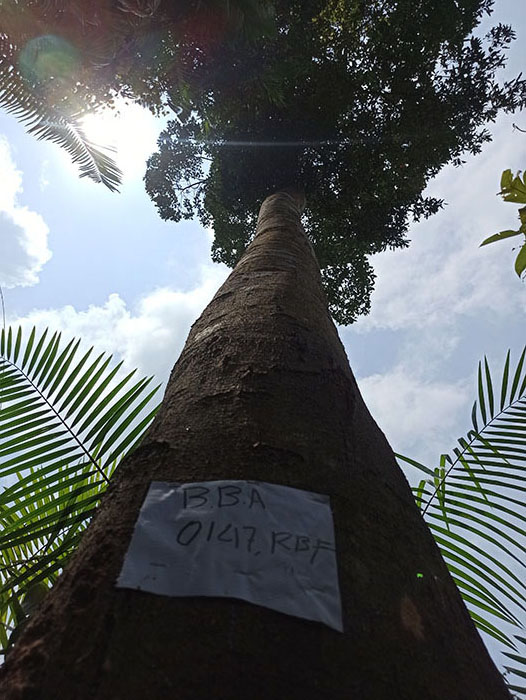 B.B.A
0147, RBF